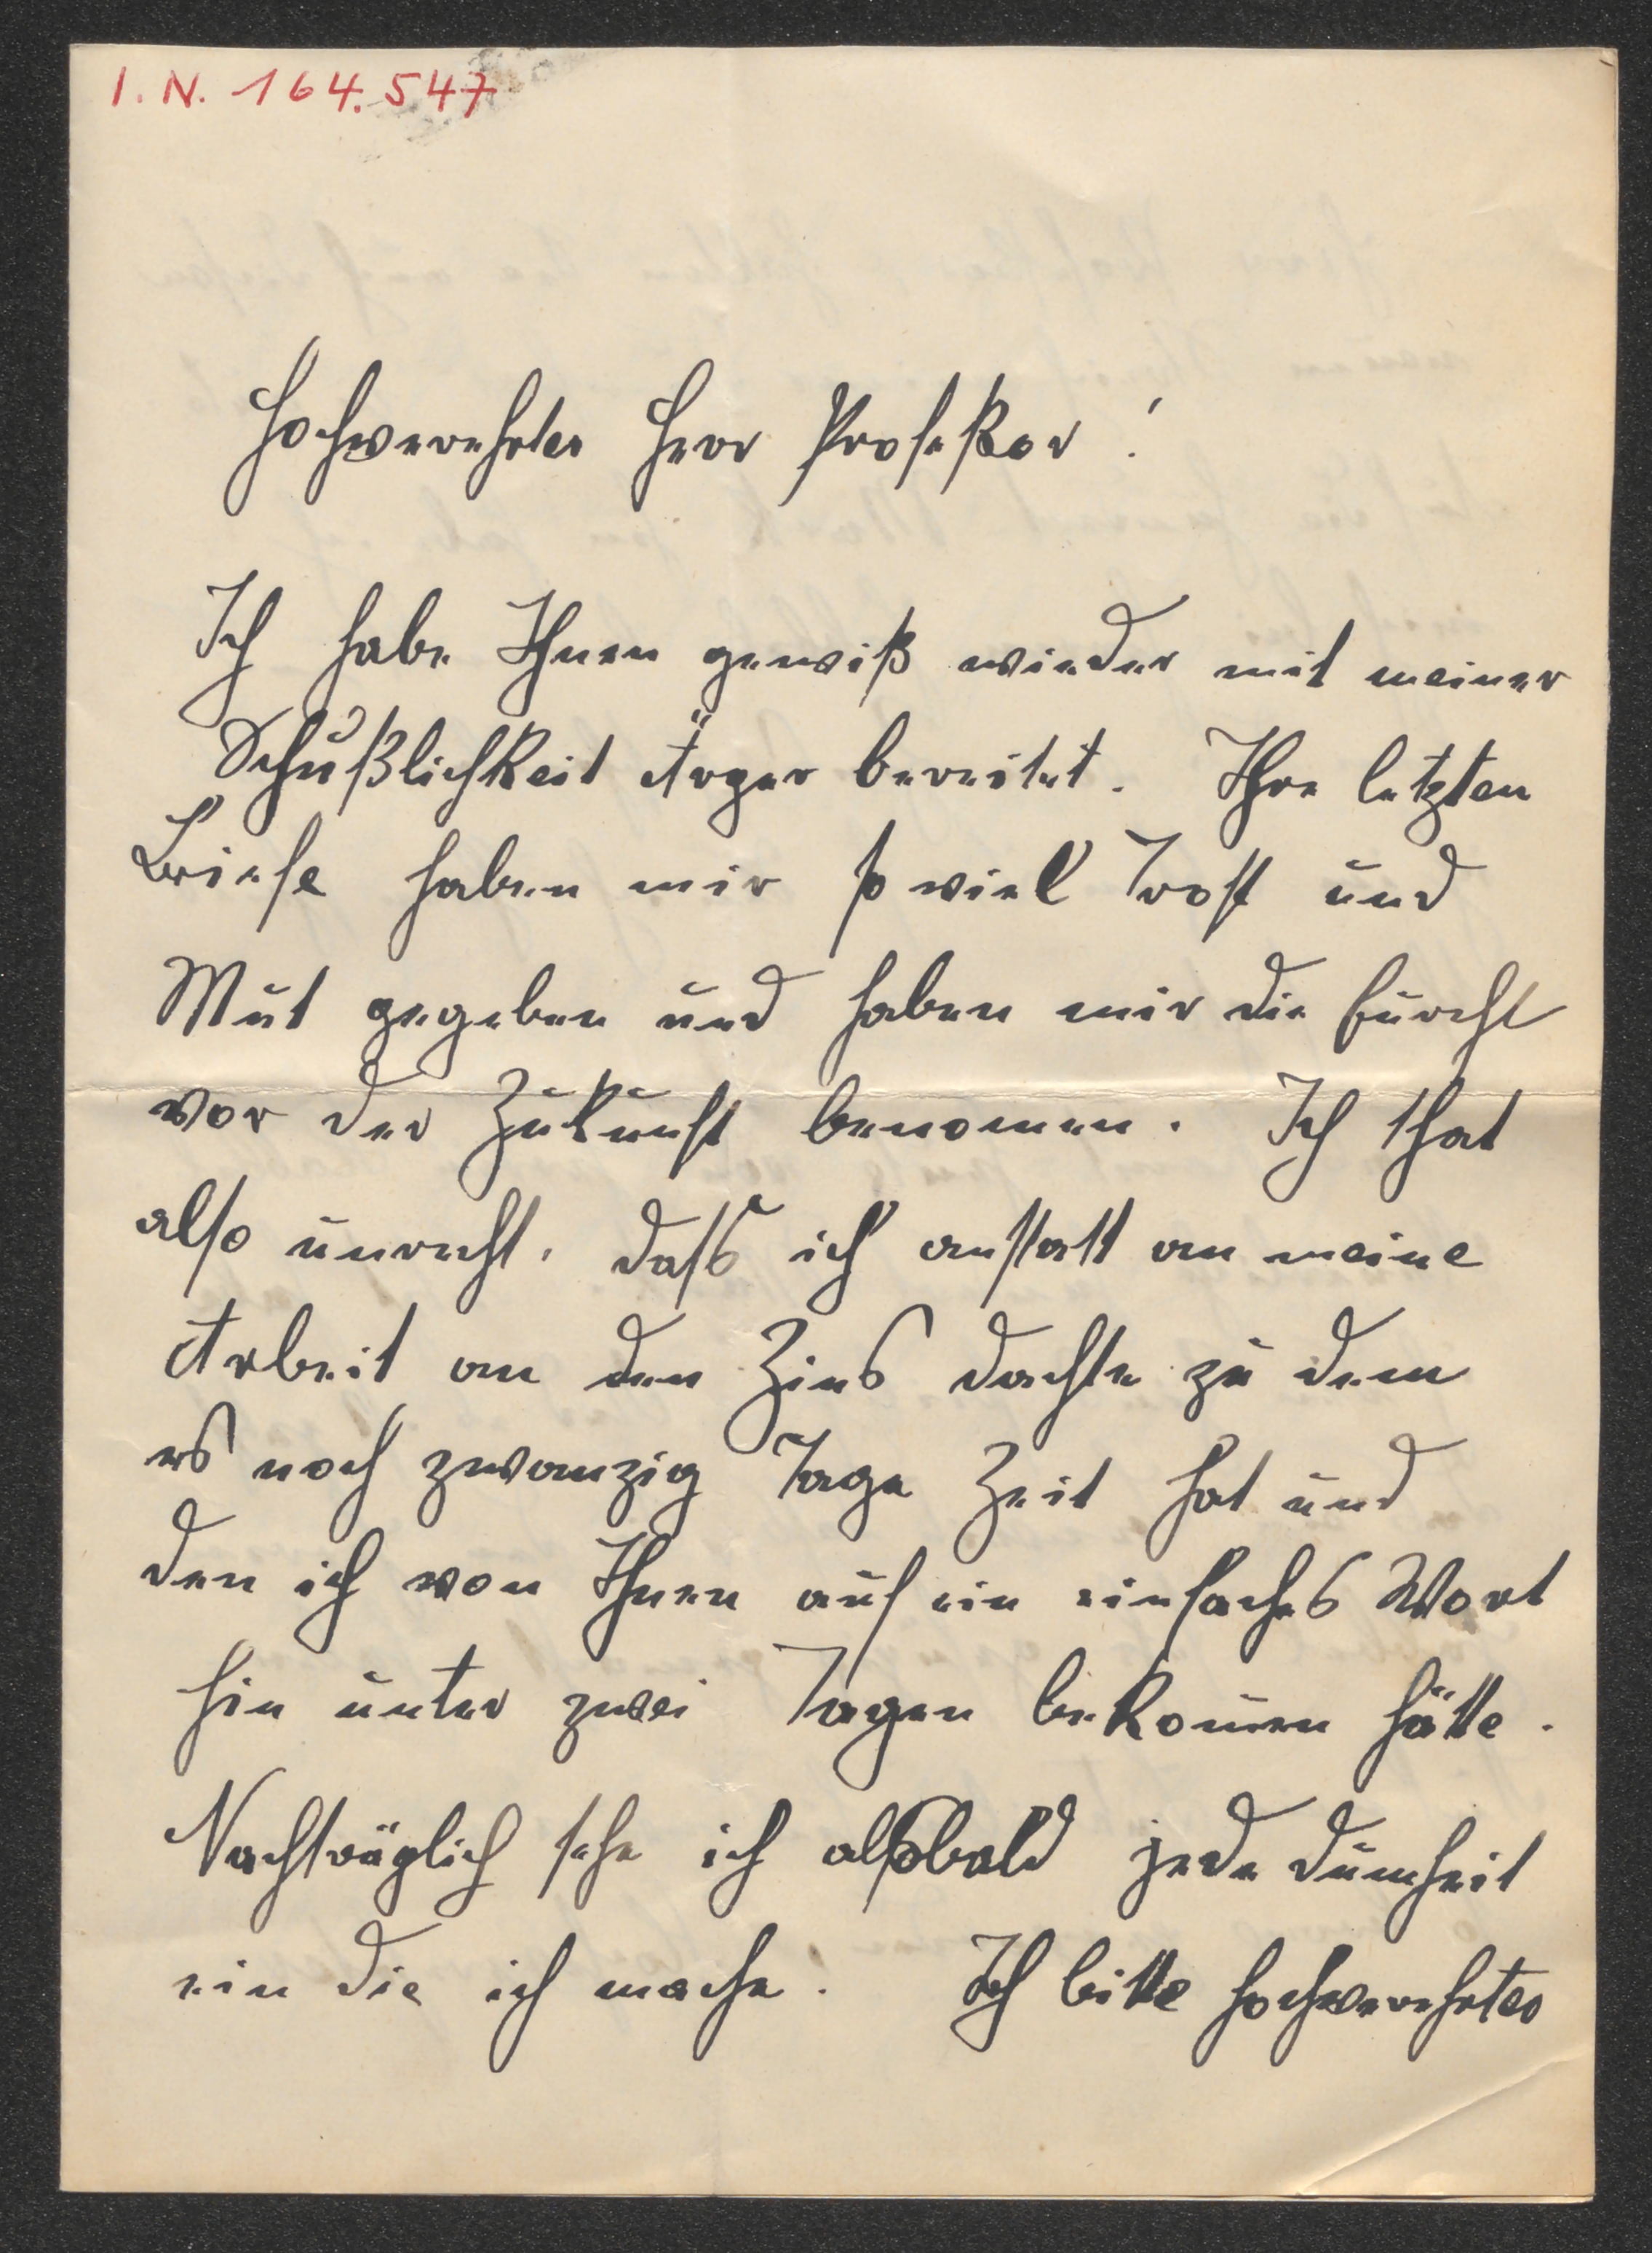 I. N. 164.547
Hochverehrter Herr Profeßor!
Ich habe Ihnen gewiß wieder mit meiner
Schußlichkeit Ärger bereitet. Ihre letzten
Briefe haben mir so viel Trost und
Mut gegeben und haben mir die Furcht
vor der Zukunft benommen. Ich that
also unrecht, dass ich anstatt an meine
Arbeit an den Zins dachte zu dem
es noch zwanzig Tage Zeit hat und
den ich von Ihnen auf ein einfaches Wort
hin unter zwei Tagen bekom̅en hätte.
Nachträglich sehe ich alsobald jede Dum̅heit
ein die ich mache. Ich bitte hochverehrter